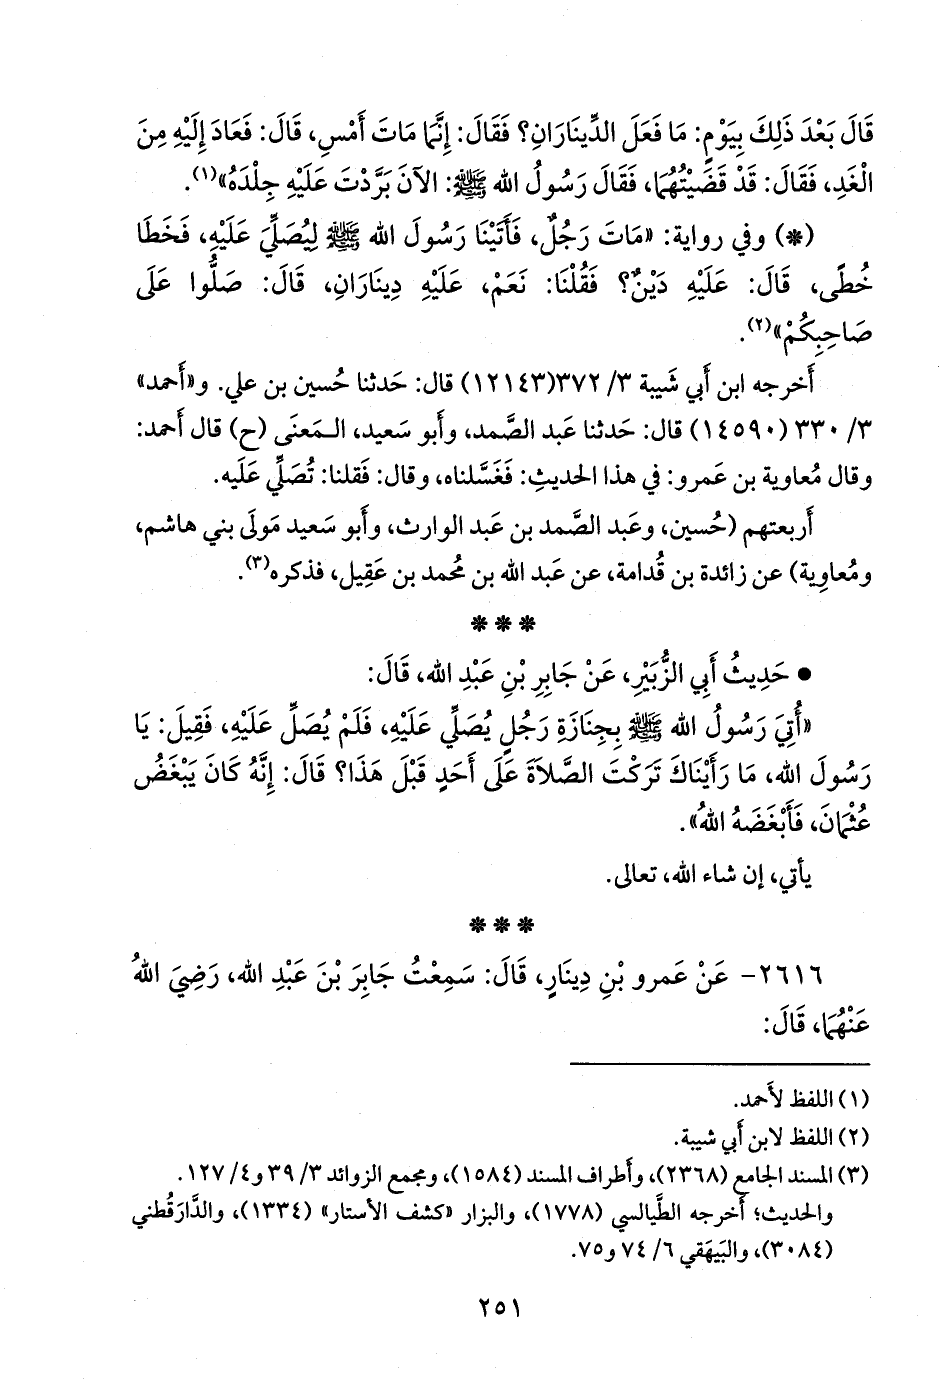 قَالَ بَعْدَ ذَلِكَ بِيَوْمٍ: مَا فَعَلَ الدِّينَارَانِ؟ فَقَالَ: إِنَّمَا مَاتَ أَمْسِ، قَالَ: فَعَادَ إِلَيْهِ مِنَ
الْغَدِ، فَقَالَ: قَدْ قَضَيْتُهُمَا، فَقَالَ رَسُولُ الله ﷺ: الآنَ بَرَّدْتَ عَلَيْهِ جِلْدَهُ»(١).
(*) وفي رواية: «مَاتَ رَجُلٌ، فَأَتَيْنَا رَسُولَ الله ﷺ لِيُصَلِّيَ عَلَيْهِ، فَخَطَا
خُطًى، قَالَ: عَلَيْهِ دَيْنٌ؟ فَقُلْنَا: نَعَمْ، عَلَيْهِ دِينَارَانِ، قَالَ: صَلُّوا عَلَى
صَاحِبِكُمْ»(٢).
أَخرجه ابن أَبي شَيبة ٣/ ٣٧٢(١٢١٤٣) قال: حَدثنا حُسين بن علي. و«أَحمد»
٣/ ٣٣٠ (١٤٥٩٠) قال: حَدثنا عَبد الصَّمد، وأَبو سَعيد، المَعنَى (ح) قال أَحمد:
وقال مُعاوية بن عَمرو: في هذا الحَديثِ: فَغَسَّلناه، وقال: فَقلنا: تُصَلِّي عَلَيه.
أَربعتهم (حُسين، وعَبد الصَّمد بن عَبد الوارث، وأَبو سَعيد مَولَى بني هاشم،
ومُعاوِية) عن زائدة بن قُدامة، عن عَبد الله بن مُحمد بن عَقِيل، فذكره(٣).
* * *
• حَدِيثُ أَبِي الزُّبَيْرِ، عَنْ جَابِرِ بْنِ عَبْدِ الله، قَالَ:
«أُتِيَ رَسُولُ الله ﷺ بِجِنَازَةِ رَجُلٍ يُصَلِّي عَلَيْهِ، فَلَمْ يُصَلِّ عَلَيْهِ، فَقِيلَ: يَا
رَسُولَ الله، مَا رَأَيْنَاكَ تَرَكْتَ الصَّلاَةَ عَلَى أَحَدٍ قَبْلَ هَذَا؟ قَالَ: إِنَّهُ كَانَ يَبْغَضُ
عُثْمَانَ، فَأَبْغَضَهُ اللهُ».
يأتي، إن شاء الله، تعالى.
* * *
٢٦١٦- عَنْ عَمرو بْنِ دِينَارٍ، قَالَ: سَمِعْتُ جَابِرَ بْنَ عَبْدِ الله، رَضِيَ اللهُ
عَنْهُمَا، قَالَ:
(١) اللفظ لأَحمد.
(٢) اللفظ لابن أَبي شيبة.
(٣) المسند الجامع (٢٣٦٨)، وأَطراف المسند (١٥٨٤)، ومجمع الزوائد ٣/ ٣٩ و٤/ ١٢٧.
والحديث؛ أَخرجه الطَّيالسي (١٧٧٨)، والبزار «كشف الأَستار» (١٣٣٤)، والدَّارَقُطني
(٣٠٨٤)، والبَيهَقي ٦/ ٧٤ و٧٥.
٢٥١